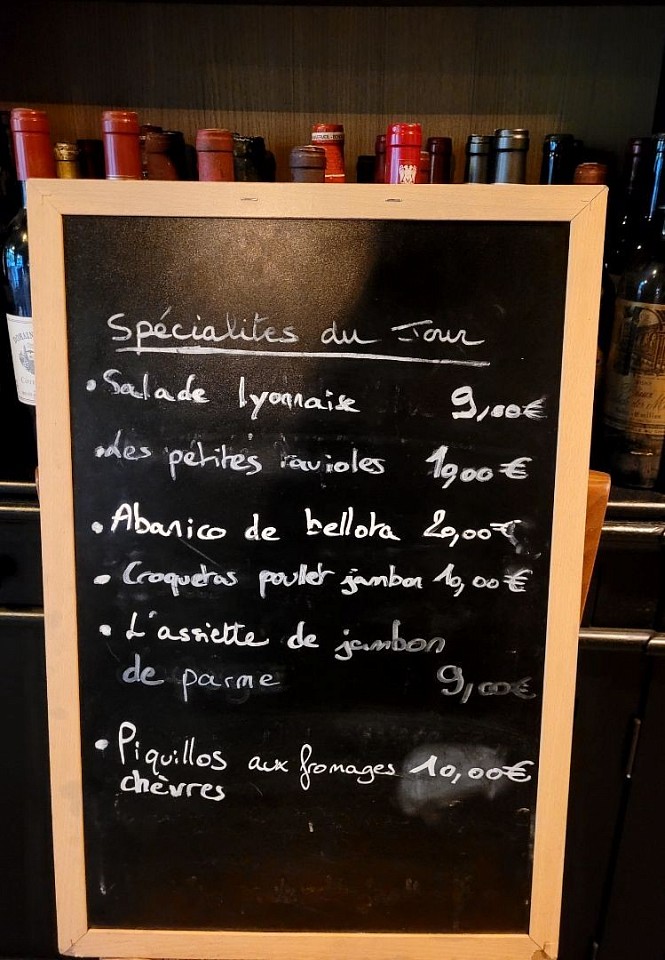 Spécialites du Jour
• Salade lyonnaise 9,00€
• Les petites ravioles 19,00€
• Abanico de bellota 20,00€
• Croquetas poulet jambon 10,00€
• L'assiette de jambon
de parme 9,00€
• Piquillos aux fromages 10,00€
chèvres